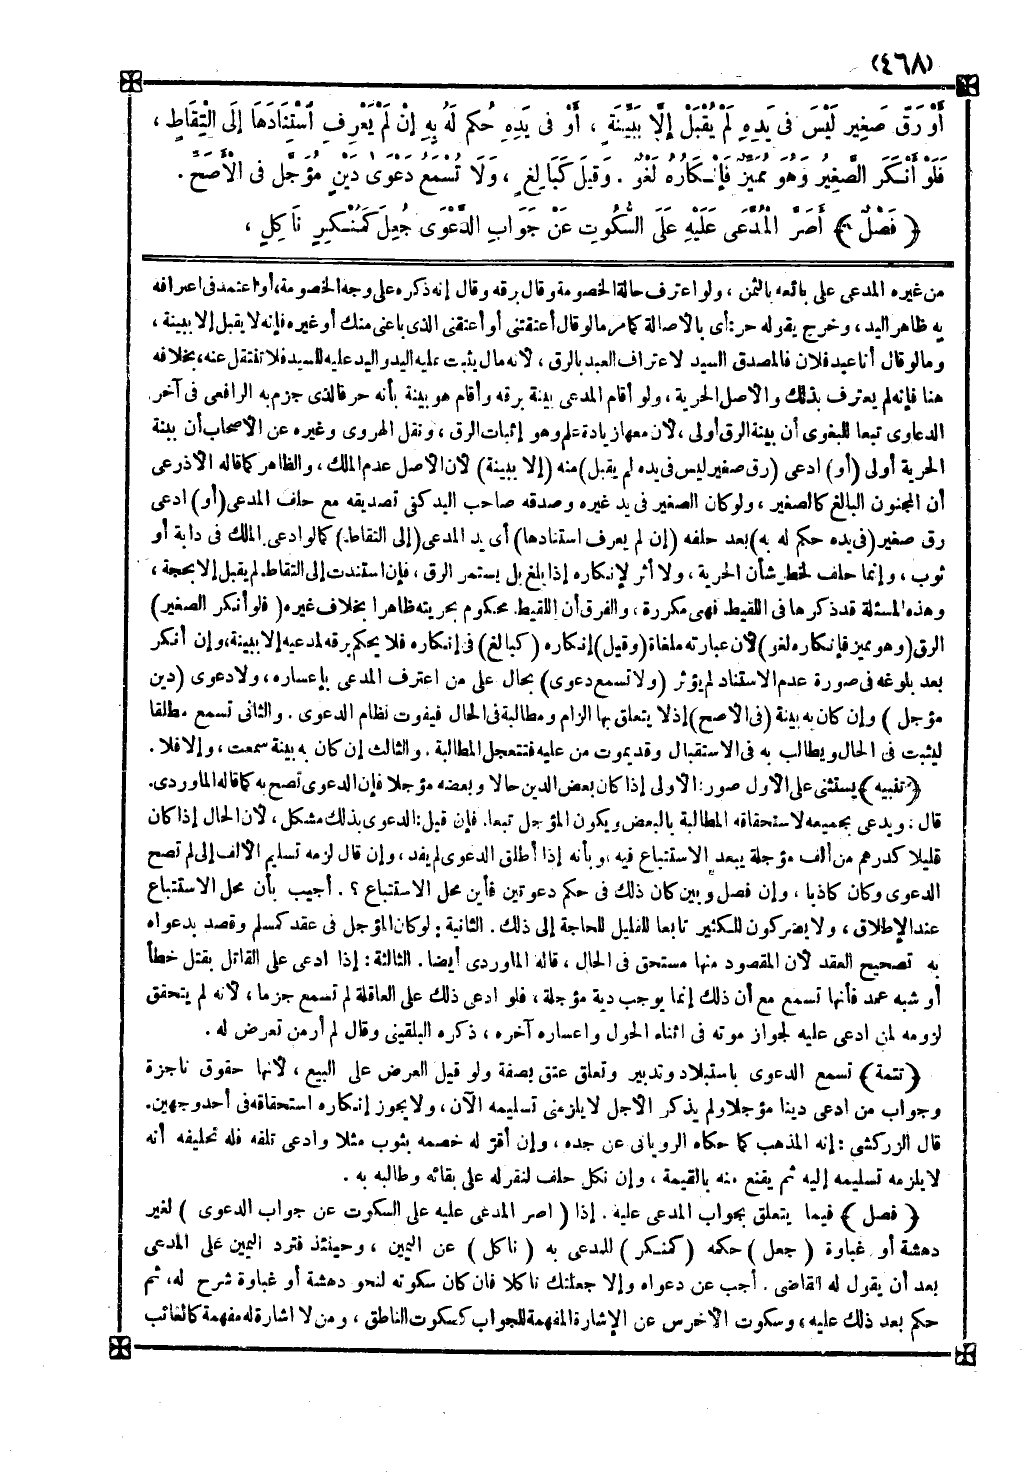 (٤٦٨)
أَوْ رِقَّ صَغِيرٍ لَيْسَ فِى يَدِهِ لَمْ يُقْبَلْ إِلَّا بِبَيِّنَةٍ ، أَوْ فِى يَدِهِ حُكِمَ لَهُ بِهِ إِنْ لَمْ يَعْرِفِ اسْتِنَادَهَا إِلَى الْتِقَاطٍ ،
فَلَوْ أَنْكَرَ الصَّغِيرُ وَهُوَ مُمَيِّزٌ فَإِنْكَارُهُ لَغْوٌ . وَقِيلَ كَبَالِغٍ ، وَلَا تُسْمَعُ دَعْوَى دَيْنٍ مُؤَجَّلٍ فِى الْأَصَحِّ .
﴿ فَصْلٌ ﴾ أَصَرَّ الْمُدَّعَى عَلَيْهِ عَلَى السُّكُوتِ عَنْ جَوَابِ الدَّعْوَى جُعِلَ كَمُنْكِرٍ نَاكِلٍ ،
من غيره المدعى على بائعه بالثمن ، ولو اعترف حالة الخصومة وقال برقه وقال إنه ذكره على وجه الخصومة، أو اعتمد فى اعترافه
به ظاهر اليد ، وخرج بقوله حر: أى بالاصالة كما مر مالو قال أعتقتنى أو أعتقنى الذى باعنى منك أو غيره فإنه لا يقبل إلا ببينة ،
ومالو قال أنا عبد فلان فالمصدق السيد لاعتراف العبد بالرق ، لأنه مال يثبت عليه اليد واليد عليه للسيد فلا تنتقل عنه، بخلافه
هنا فإنه لم يعترف بذلك والاصل الحرية ، ولو أقام المدعى بينة برقه وأقام هو بينة بأنه حر فالذى جزم به الرافعى فى آخر
الدعاوى تبعا للبغوى أن بينة الرق أولى ، لأن معها زيادة علم وهو إثبات الرق ، ونقل الهروى وغيره عن الأصحاب أن بينة
الحرية أولى (أو) ادعى (رق صغير ليس فى يده لم يقبل) منه (إلا ببينة) لأن الاصل عدم الملك ، والظاهر كما قاله الأذرعى
أن المجنون البالغ كالصغير ، ولو كان الصغير فى يد غيره وصدقه صاحب اليد كفى تصديقه مع حلف المدعى (أو) ادعى
رق صغير (فى يده حكم له به) بعد حلفه (إن لم يعرف استنادها) أى يد المدعى (إلى التقاط) كما لو ادعى الملك فى دابة أو
ثوب ، وإنما حلف لخطر شأن الحرية ، ولا أثر لإنكاره إذا بلغ بل يستمر الرق ، فإن استندت إلى التقاط لم يقبل إلا بحجة ،
وهذه المسئلة قد ذكرها فى اللقيط فهى مكررة ، والفرق أن اللقيط محكوم بحريته ظاهرا بخلاف غيره (فلو أنكر الصغير)
الرق (وهو مميز فإنكاره لغو) لأن عبارته ملغاة (وقيل) إنكاره (كبالغ) فى إنكاره فلا يحكم برقه لمدعيه إلا ببينة، وإن أنكر
بعد بلوغه فى صورة عدم الاستناد لم يؤثر (ولا تسمع دعوى) بحال على من اعترف المدعى بإعساره ، ولا دعوى (دين
مؤجل ) وإن كان به بينة (فى الأصح) إذ لا يتعلق بها الزام ومطالبة فى الحال فيفوت نظام الدعوى . والثانى تسمع مطلقا
ليثبت فى الحال ويطالب به فى الاستقبال وقد يموت من عليه فتتعجل المطالبة . والثالث إن كان به بينة سمعت ، وإلا فلا .
﴿ تنبيه ﴾ يستثنى على الأول صور: الأولى إذا كان بعض الدين حالا وبعضه مؤجلا فإن الدعوى تصح به كما قاله الماوردى.
قال : ويدعى بجميعه لاستحقاقه المطالبة بالبعض ويكون المؤجل تبعا. فإن قيل: الدعوى بذلك مشكل ، لأن الحال إذا كان
قليلا كدرهم من ألف مؤجلة يبعد الاستتباع فيه ، وبأنه إذا أطلق الدعوى لم يفد ، وإن قال لزمه تسليم الألف إلى لم تصح
الدعوى وكان كاذبا ، وإن فصل وبين كان ذلك فى حكم دعوتين فأين محل الاستتباع ؟ . أجيب بأن محل الاستتباع
عند الإطلاق ، ولا يضر كون الكثير تابعا للقليل للحاجة إلى ذلك . الثانية : لو كان المؤجل فى عقد كمسلم وقصد بدعواه
به تصحيح العقد لأن المقصود منها مستحق فى الحال ، قاله الماوردى أيضا . الثالثة : إذا ادعى على القاتل بقتل خطأ
أو شبه عمد فأنها تسمع مع أن ذلك إنما يوجب دية مؤجلة ، فلو ادعى ذلك على العاقلة لم تسمع جزما ، لأنه لم يتحقق
لزومه لمن ادعى عليه لجواز موته فى اثناء الحول واعساره آخره ، ذكره البلقينى وقال لم أر من تعرض له .
﴿ تتمة ﴾ تسمع الدعوى باستيلاد وتدبير وتعلق عتق بصفة ولو قبل العرض على البيع ، لأنها حقوق ناجزة
وجواب من ادعى دينا مؤجلا ولم يذكر الأجل لا يلزمنى تسليمه الآن ، ولا يجوز إنكاره استحقاقه فى أحد وجهين.
قال الزركشى : إنه المذهب كما حكاه الرويانى عن جده ، وإن أقر له خصمه بثوب مثلا وادعى تلفه فله تحليفه أنه
لا يلزمه تسليمه إليه ثم يقنع منه بالقيمة ، وإن نكل حلف المقر له على بقائه وطالبه به .
﴿ فصل ﴾ فيما يتعلق بجواب المدعى عليه . إذا ( اصر المدعى عليه على السكوت عن جواب الدعوى ) لغير
دهشة أو غباوة ( جعل ) حكمه (كمنكر ) للمدعى به ( ناكل ) عن اليمين ، وحينئذ فترد اليمين على المدعى
بعد أن يقول له القاضى . أجب عن دعواه وإلا جعلتك ناكلا فان كان سكوته لنحو دهشة أو غباوة شرح له، ثم
حكم بعد ذلك عليه ، وسكوت الأخرس عن الإشارة المفهمة للجواب كسكوت الناطق ، ومن لا اشارة له مفهمة كالغائب